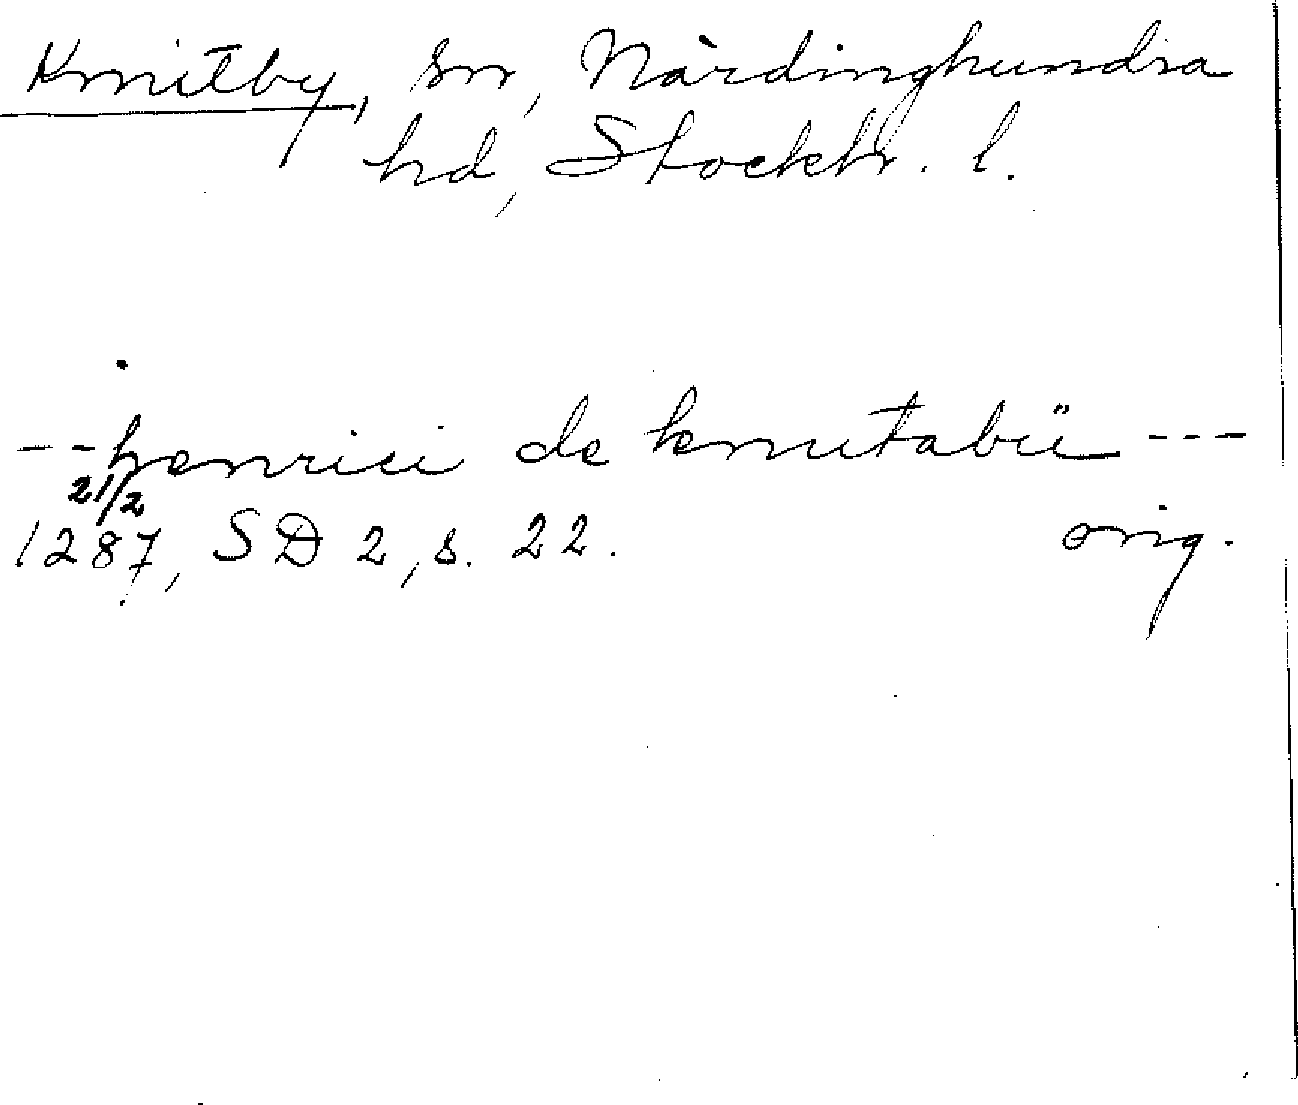 Knutby, sn, Närdinghundra
hd, Stockh. l.
-- henrici de knutabü ---
21/2
1287, SD 2, s. 22. orig.